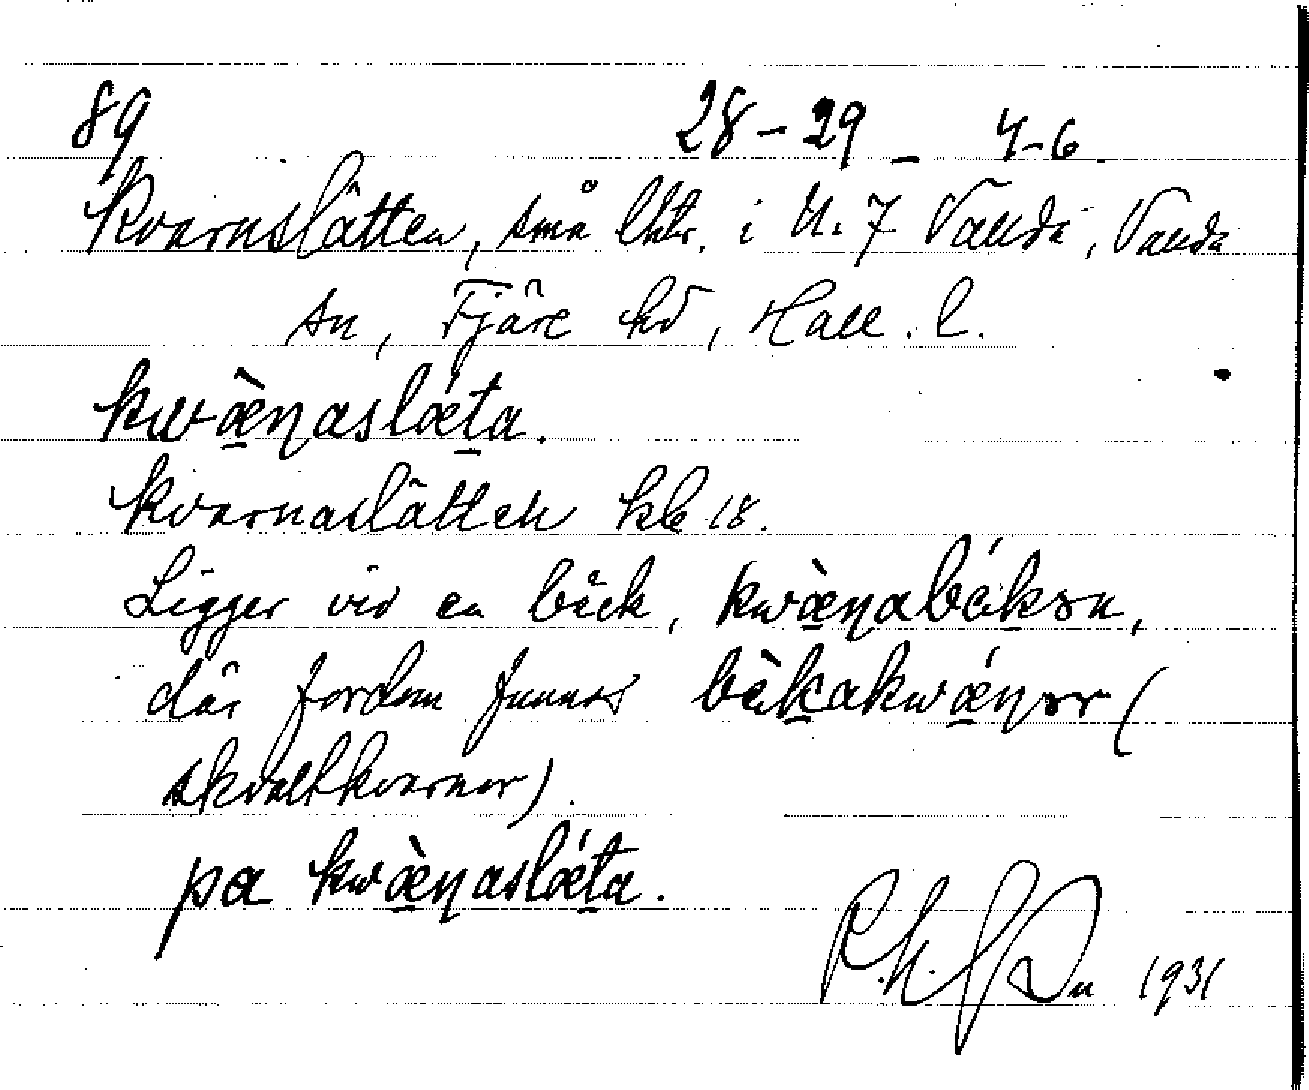 89 28-29 - 4-6.
Kvarnslätten, små lhtr. i N. 7 Vallda, Vallda
sn, Fjäre hd, Hall. l.
kwæ̀ɳaslǽta.
Kvarnaslätten kbl 18.
Ligger vid en bäck, kwæ̀ɳabǽkən,
där fordom funnos bæ̀kakwǽɳər (
skvaltkvarnor).
pa kwæ̀ɳaslǽta.
1931